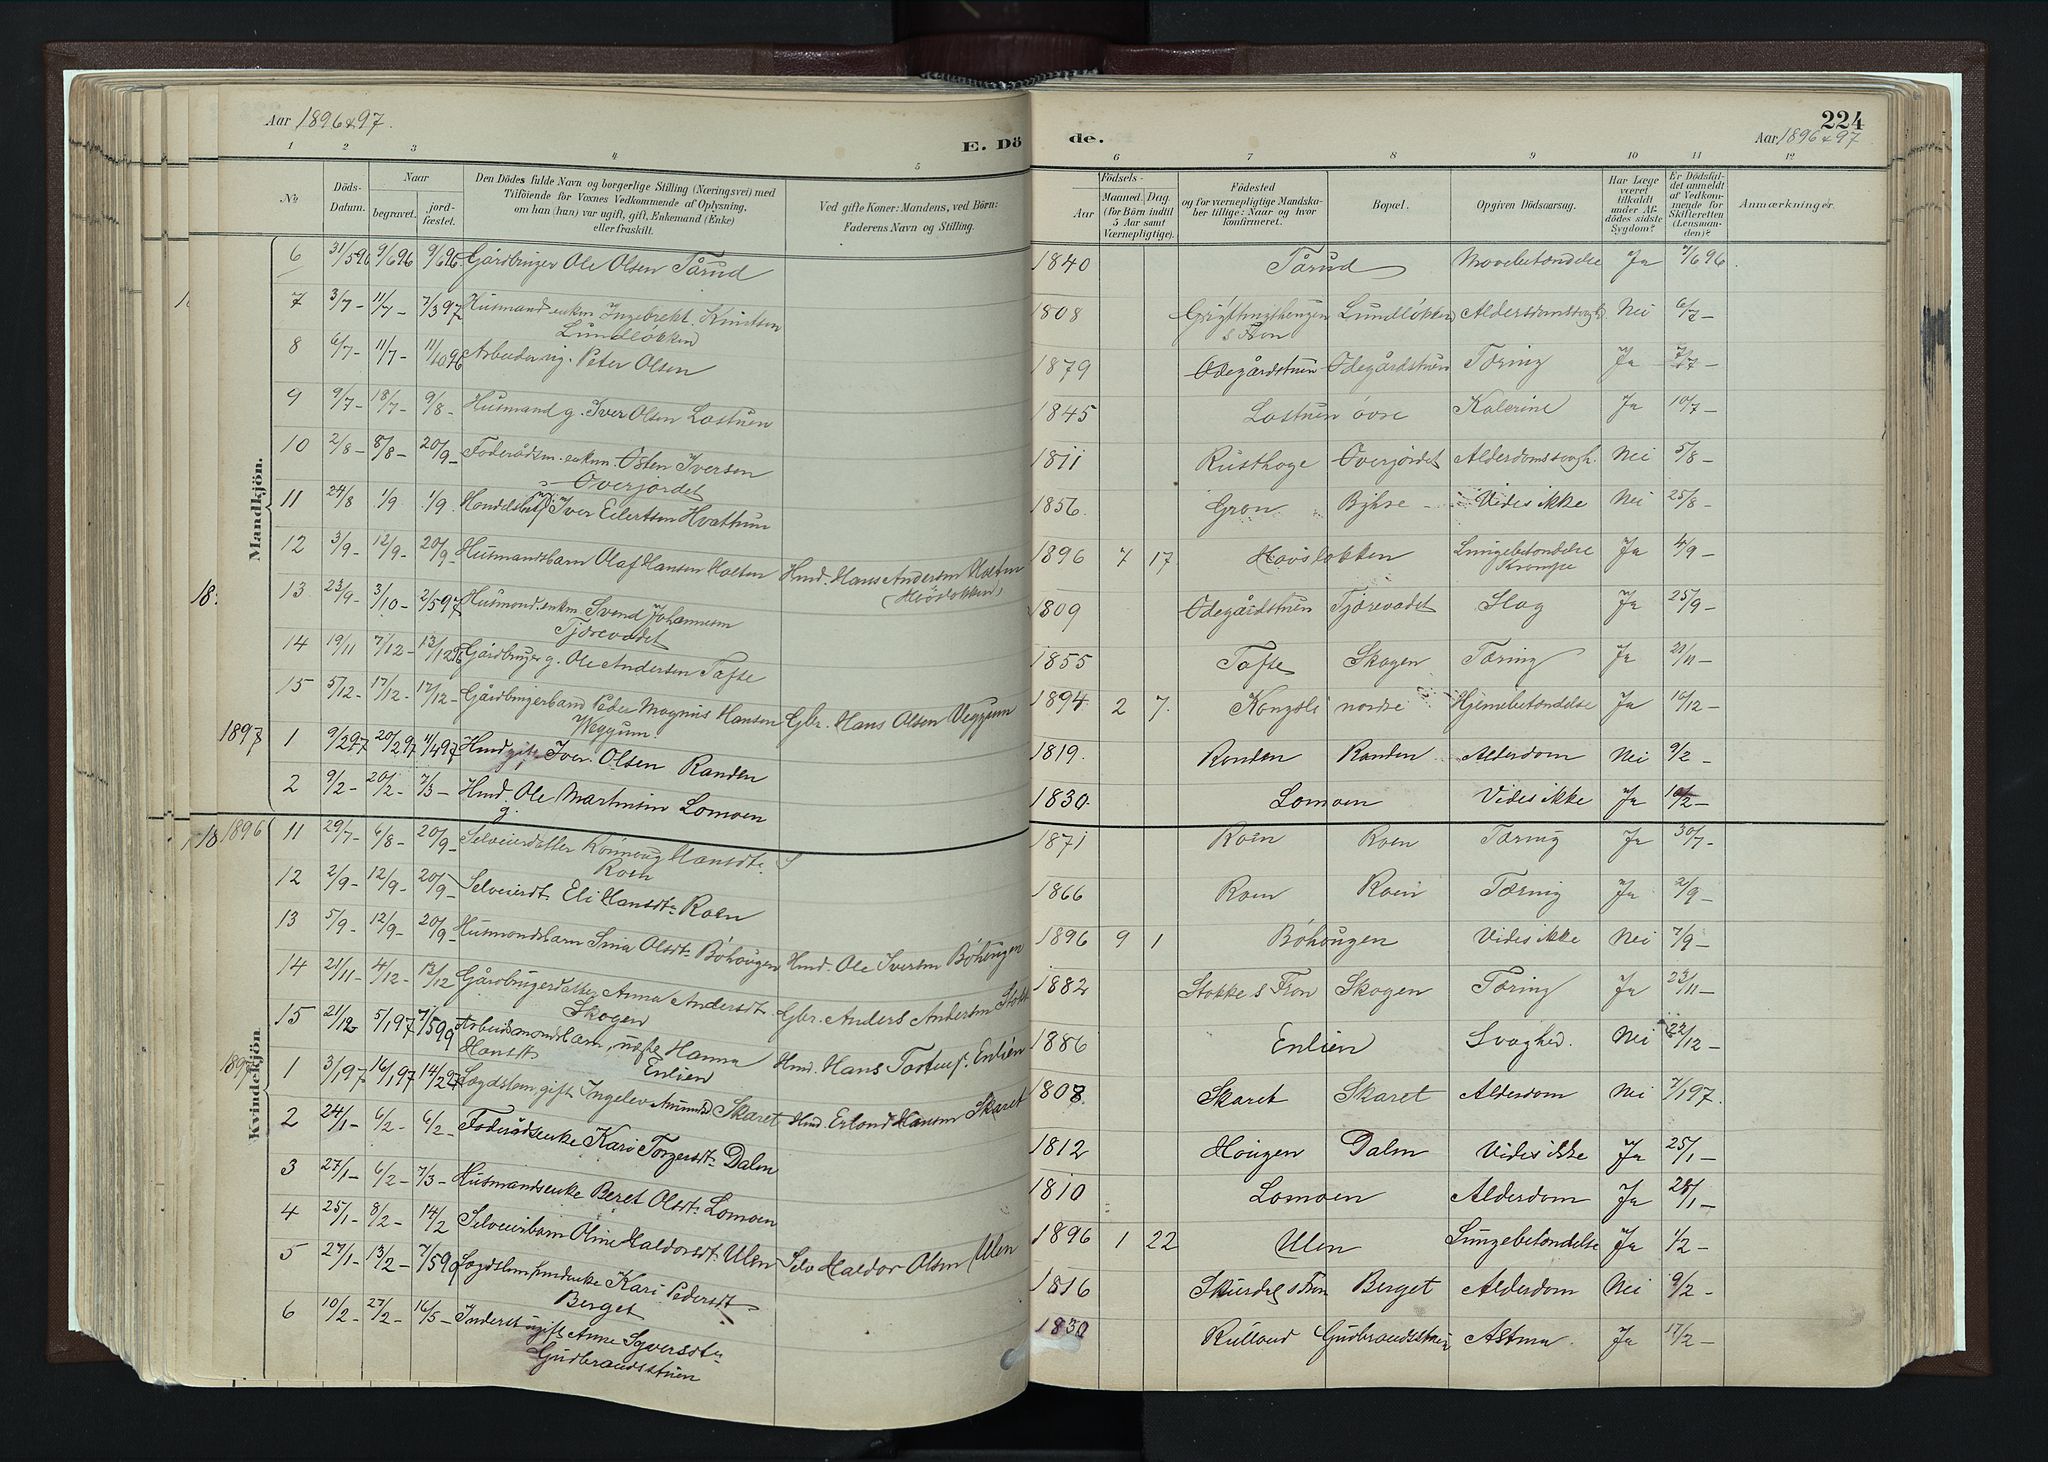 Aar 1896 & 97.
E. Dö
de.
224
Aar 1896 & 97
1 2 3 4 5 6 7 8 9 10 11 12
No
Döds-Datum.
Naar
begravet.
jord-fæstet.
Den Dödes fulde Navn og borgerlige Stilling (Næringsvei) med
Tilföiende for Voxnes Vedkommende af Oplysning,
om han (hun) var ugift, gift, Enkemand (Enke)
eller fraskilt.
Ved gifte Koner: Mandens, ved Börn:
Faderens Navn og Stilling.
Födsels-
Aar
Maaned. Dag.
(for Börn indtil
5 Aar samt
Værnepligtige).
Födested
og for værnepligtige Mandska-
ber tillige: Naar og hvor
konfirmeret.
Bopæl.
Opgiven Dödsaarsag.
Har Læge
været
tilkaldt
under Af-
dödes sidste
Sygdom?
Er Dödsfal-
det anmeldt
af Vedkom-
mende for
Skifteretten
(Lensman-
den)?
Anmærkninger.
Mandkjön.
6 31/5 96 9/6 96 9/6 96 Gårdbruger Ole Olsen Tårud 1840 Tårud Ja 7/6 96.
7 3/7 - 11/7 - 7/3 97 Husmand enkm Ingebrekt Knutsen 1808 Lundløkken Nei 6/7 -
Lundløkken s Fron
8 6/7 - 11/7 - 11/10 96 Arbeider ug. Peter Olsen 1879 Ødegårdstuen Ødegårdstuen Tæring Ja 7/7 -
9 9/7 - 18/7 - 9/8 - Husmand g. Iver Olsen Lostuen 1845 Lostuen øvre Ja 10/7 -
10 2/8 - 8/8 - 20/9 - Foderådsm. enkm. Østen Iversen 1811 Rusthage Øverjordet Alderdomssvagh. Nei 5/8 -
Øverjordet
11 24/8 1/9 1/9. Iver Eilertsen Hvattum 1856. Gron Vides ikke Nei 25/8 -
12 3/9 - 12/9 - 20/9 - Husmandsbarn Olaf Hansen Holten Hmd. Hans Andersen Holten 1896 7 17 Lungebetændelse Ja 4/9 -
Krampe
13 23/9 - 3/10 - 2/5 97 Husmand enkm Svend Johannesen 1809 Ødegårdstuen Tjærevadet Slag Ja 25/9 -
Tjærevadet
14 19/11 7/12 - 13/12 96 Gårdbruger g. Ole Andersen Tofte 1855 Tofte Skogen Tæring Ja 21/11 -
15 5/12 - 17/12 - 17/12 - Gårdbrugerbarn Peder Magnus Hansen Gbr. Hans Olsen Veggum 1894 2 7. Kongsli nordre Hjernebetændelse Ja 16/12 -
Veggum.
1897 1 9/2 97 20/2 97 11/4 97 Hmd gift Iver Olsen Randen 1819. Randen Randen Alderdom Nei 9/2 -
2 9/2 - 20/2 - 7/3 - Hmd. Ole Martinsen Lomoen 1830. Lomoen Vides ikke Ja 10/2 -
g.
Kvindekjön
1896 11 29/7 - 6/8 - 20/9 - Selveierdatter Rønnoug Hansdt. 1871 Roen Roen Tæring Ja 30/7 -
Roen
12 2/9 - 12/9 - 20/9 - Selveierdt. Eli Hansdt. Roen 1866 Roen Roen Tæring Ja 2/9 -
13 5/9 - 12/9 - 20/9 - Husmandsbarn Sina Olsdt. Böhougen Hmd. Ole Iversen Böhougen 1896 9 1 Böhougen Vides ikke Nei 7/9 -
14 21/11 - 4/12 - 13/12 Gårdbrugerdatter Anna Andersdt. Gbr. Anders Andersen 1882 Stokke s Fron Skogen Tæring Ja 23/11 -
Skogen
15 21/12 5/1 97 7/5 99 Arbeidsmandsbarn, Hanna Hmd. Hans Enlien 1886 Enlien Svaghed. Nei 22/12 -
Hansdt. Enlien
1897 1 3/1 97 16/1 97 14/2 97 Lægdslem, gift Ingelev Skaret Hmd. Erland Hansen Skaret 1808. Skaret Skaret Alderdom Nei 7/1 97.
2 24/1 - 6/2 - 6/2 - Foderådsenke Kari Torgersdt. Dalen 1812 Hougen Dalen Vides ikke Ja 25/1 -
3 27/1 - 6/2 - 7/3 - Husmandsenke Beret Olsdt. Lomoen 1810 Lomoen Alderdom Ja 28/1 -
4 25/1 - 8/2 - 14/2 Selveierbarn Oline Haldorsdt. Ulen Selv Haldor Olsen Ulen 1896 1 22 Ulen Lungebetændelse Ja 1/2 -
5 27/1 - 13/2 - 7/5 99 Lægdslem, Kari Pedersdt. 1816 Skurdal s Fron Berget Alderdom Nei 9/2 -
Berget
6 10/2 - 27/2 - 16/5 - Inderst ugift Anne Syversdt. 1830 Rulland Gudbrandsstuen Astma. Ja 17/2 -
Gudbrandsstuen